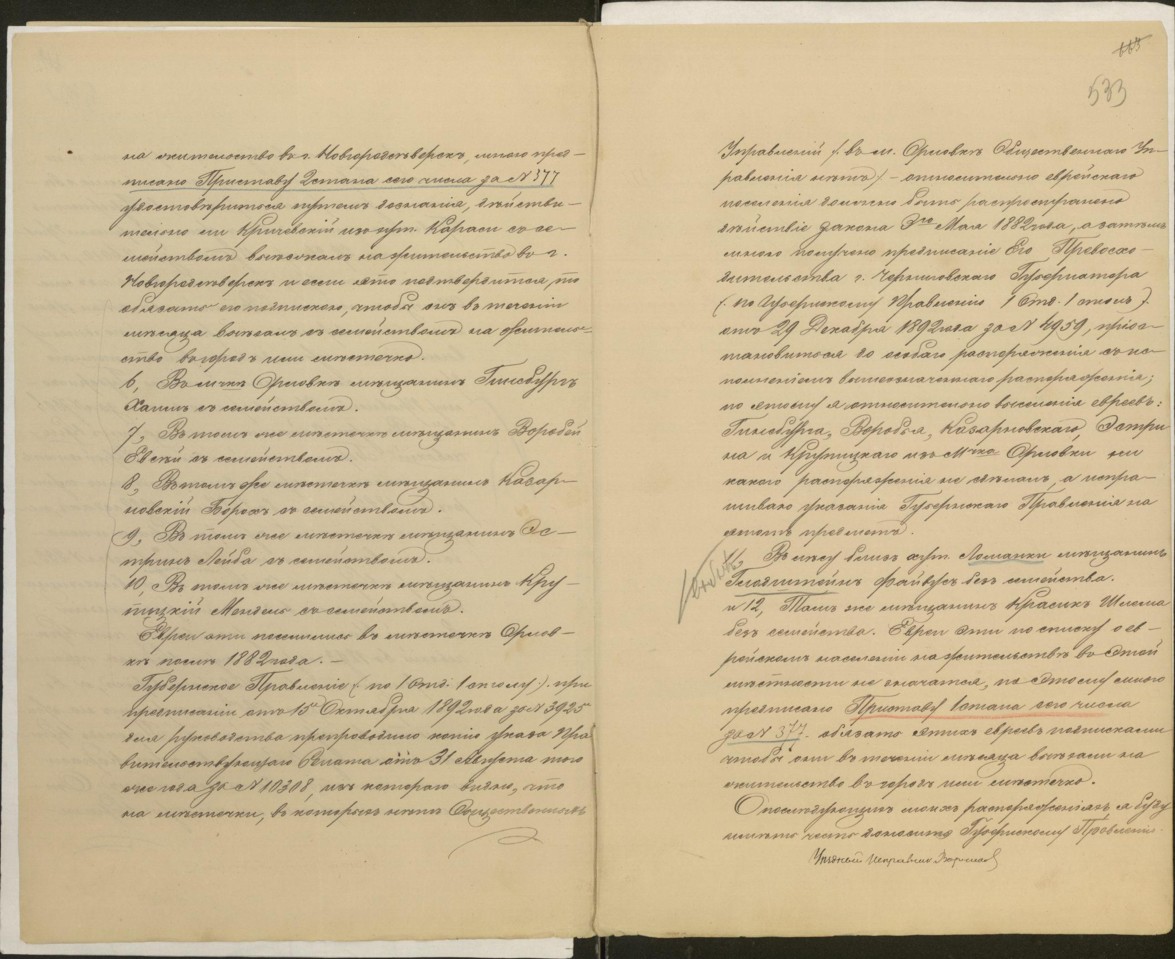 на жительство в г. Новгородсѣверскъ, мною пред-
писано Приставу 2 стана сего числа за N 377
удостовѣриться путемъ дознанія, дѣйстви-
тельно ли Кричевскій изъ хут. Караси съ се-
мействомъ выѣхалъ на жительство в г.
Новгородсѣверскъ и если это подтвердится, то
обязать его подпискою, чтобы онъ въ теченіи
мѣсяца выѣхалъ съ семействомъ на житель-
ство въ городъ или мѣстечко.
6, Въ мѣчкѣ Орловкѣ мѣщанинъ Гинсбургъ
Хаимъ съ семействомъ.
7, Въ томъ же мѣстечкѣ мѣщанинъ Воробей
Евсѣй съ семействомъ.
8, Въ томъ же мѣстечкѣ мѣщанинъ Казар-
новскій Борохъ съ семействомъ.
9, Въ томъ же мѣстечкѣ мѣщанинъ Эс-
тринъ Лейба съ семействомъ.
10, Въ томъ же мѣстечкѣ мѣщанинъ Кру-
пицкій Мендель съ семействомъ.
Евреи эти поселились въ мѣстечкѣ Орлов-
кѣ послѣ 1882 года. —
Губернское Правленіе (по 1 Отд. 1 столу) при
предписаніи отъ 15 Октября 1892 года за N 3925
для руководства препроводило копію указа Пра-
вительствующаго Сената отъ 31 Августа того
же года за N 10308, изъ котораго видно, что
на мѣстечки, въ которыхъ нѣтъ Общественныхъ
113
533
Управленій (въ м. Орловкѣ Общественнаго Уп-
равленія нѣтъ) — относительно еврейскаго
населенія должно быть распространено
дѣйствіе закона 3го Мая 1882 года, а затѣмъ
мною получено предписаніе Его Превосхо-
дительства г. Черниговскаго Губернатора
(по Губернскому Правленію 1 Отд. 1 столъ)
отъ 29 Декабря 1892 года за N 4959, пріос-
тановиться до особаго распоряженія съ ис-
полненіемъ вышеозначеннаго распоряженія;
по этому я относительно выселенія евреевъ:
Гинсбурга, Воробья, Казарновскаго, Эстри
на и Крупицкаго изъ Мѣчка Орловки ни
какого распоряженія не сдѣлалъ, а испра-
шиваю указанія Губернскаго Правленія на
этотъ предметъ.
11, Въ лѣсу близъ хут. Лемашки мѣщанинъ
Файвусъ безъ семейства.
и 12, Тамъ же мѣщанинъ Красикъ Шлема
безъ семейства. Евреи эти по списку о ев-
рейскомъ населеніи на жительствѣ въ этой
мѣстности не значатся, по этому мною
предписано Приставу 1 стана сего числа
за N 377. обязать этихъ евреевъ подписками
чтобы они въ теченіи мѣсяца выѣхали на
жительство въ городъ или мѣстечко.
О послѣдующемъ моихъ распоряженіяхъ я буду
имѣть честь доложить Губернскому Правленію.
Уѣздный Исправникъ